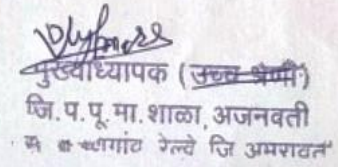 मुख्याध्यापक (उच्च श्रेणी)
जि.प.पू.मा.शाळा, अजनवती
रेल्वे जि अमरावती